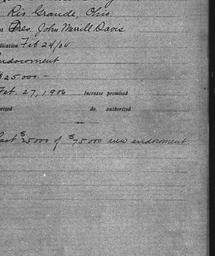 Rio Grande, Ohio
Pres. John Merrill Davis
Feb 24/06
Endowment
$25000 —
Feb. 27, 1906 Increase promised
do. authorized
—
last $25000 of $75000 new endowment